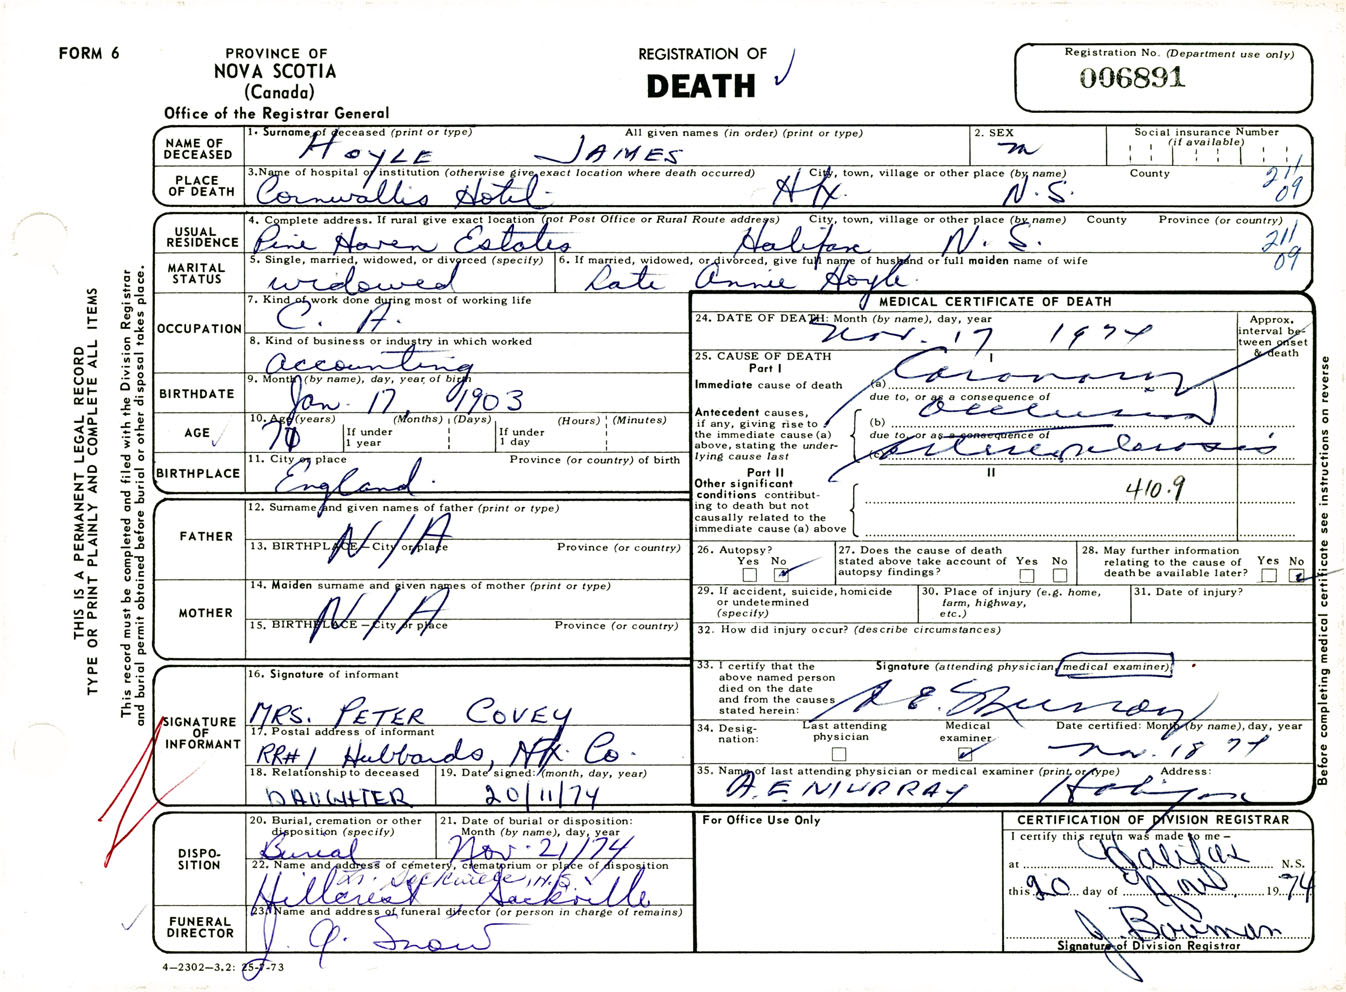 FORM 6
PROVINCE OF
NOVA SCOTIA
(Canada)
Office of the Registrar General
REGISTRATION OF
DEATH
Registration No. (Department use only)
006891
NAME OF DECEASED
1. Surname of deceased (print or type) All given names (in order) (print or type)
HOYLE JAMES
2. SEX
m
Social insurance Number
(if available)
PLACE OF DEATH
3. Name of hospital or institution (otherwise give exact location where death occurred) City, town, village or other place (by name) County
Cornwallis Hotel Hfx. N.S.
211
09
USUAL RESIDENCE
4. Complete address. If rural give exact location (not Post Office or Rural Route address) City, town, village or other place (by name) County Province (or country)
Pine Haven Estates Halifax N.S.
211
09
MARITAL STATUS
5. Single, married, widowed, or divorced (specify)
widowed
6. If married, widowed, or divorced, give full name of husband or full maiden name of wife
Late Annie Hoyle
OCCUPATION
7. Kind of work done during most of working life
C. A.
8. Kind of business or industry in which worked
accounting
BIRTHDATE
9. Month (by name), day, year of birth
Jan. 17, 1903
AGE
10. Age (years) (Months) (Days) (Hours) (Minutes)
If under 1 year
If under 1 day
BIRTHPLACE
11. City or place Province (or country) of birth
England.
FATHER
12. Surname and given names of father (print or type)
N/A
13. BIRTHPLACE—City or place Province (or country)
MOTHER
14. Maiden surname and given names of mother (print or type)
N/A
15. BIRTHPLACE—City or place Province (or country)
SIGNATURE OF INFORMANT
16. Signature of informant
MRS. PETER COVEY
17. Postal address of informant
RR#1 Hubbards, Hfx. Co.
18. Relationship to deceased
DAUGHTER
19. Date signed: (month, day, year)
20/11/74
DISPOSITION
20. Burial, cremation or other disposition (specify)
Burial
21. Date of burial or disposition: Month (by name), day, year
Nov. 21/74
22. Name and address of cemetery, crematorium or place of disposition
Sackville, N.S.
Hillcrest Sackville
FUNERAL DIRECTOR
23. Name and address of funeral director (or person in charge of remains)
J. A. Snow
4—2302—3.2: 25-7-73
MEDICAL CERTIFICATE OF DEATH
24. DATE OF DEATH: Month (by name), day, year
Nov. 17 1974
Approx. interval between onset & death
25. CAUSE OF DEATH
Part I
I
Immediate cause of death
(a) Coronary
due to, or as a consequence of
Antecedent causes, if any, giving rise to the immediate cause (a) above, stating the underlying cause last
(b) occlusion
due to, or as a consequence of
(c) arteriosclerosis
Part II
II
Other significant conditions contributing to death but not causally related to the immediate cause (a) above
410.9
26. Autopsy?
Yes No
27. Does the cause of death stated above take account of autopsy findings?
Yes No
28. May further information relating to the cause of death be available later?
Yes No
29. If accident, suicide, homicide or undetermined (specify)
30. Place of injury (e.g. home, farm, highway, etc.)
31. Date of injury?
32. How did injury occur? (describe circumstances)
33. I certify that the above named person died on the date and from the causes stated herein:
Signature (attending physician, medical examiner)
A E Murray
34. Designation:
Last attending physician
Medical examiner
Date certified: Month (by name), day, year
Nov. 18 74
35. Name of last attending physician or medical examiner (print or type) Address:
A. E. MURRAY Halifax
For Office Use Only
CERTIFICATION OF DIVISION REGISTRAR
I certify this return was made to me —
at Halifax N.S.
this 20 day of Nov 1974
J. Bowman
Signature of Division Registrar
THIS IS A PERMANENT LEGAL RECORD
TYPE OR PRINT PLAINLY AND COMPLETE ALL ITEMS
This record must be completed and filed with the Division Registrar
and burial permit obtained before burial or other disposal takes place.
Before completing medical certificate see instructions on reverse